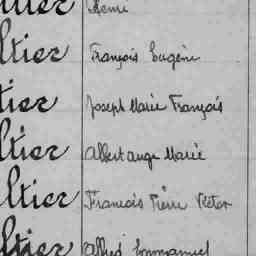 ltier Remi
ltier François Eugène
tier Joseph Marie François
ltier Albert ange Marie
ltier François Pierre Victor
ltier Alfred Emmanuel